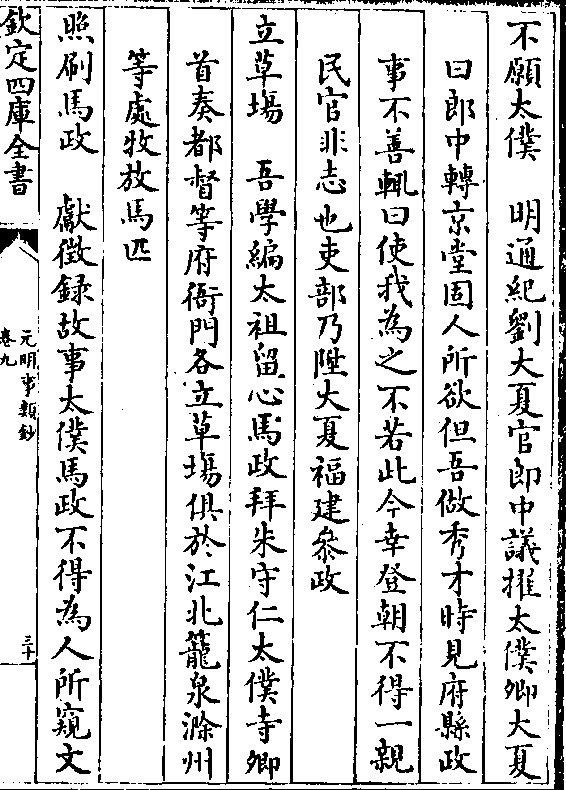 不願太僕　明通紀劉大夏官郎中議擢太僕卿大夏
曰郎中轉京堂固人所欲但吾做秀才時見府縣政
事不善輒曰使我為之不若此今幸登朝不得一親
民官非志也吏部乃陞大夏福建叅政
立草塲　吾學編太祖留心馬政拜朱守仁太僕寺卿
首奏都督等府衙門各立草塲俱於江北籠泉滁州
等處牧放馬匹
照刷馬政　獻徵録故事太僕馬政不得為人所窺文
欽定四庫全書
元明事類鈔
卷九
三十